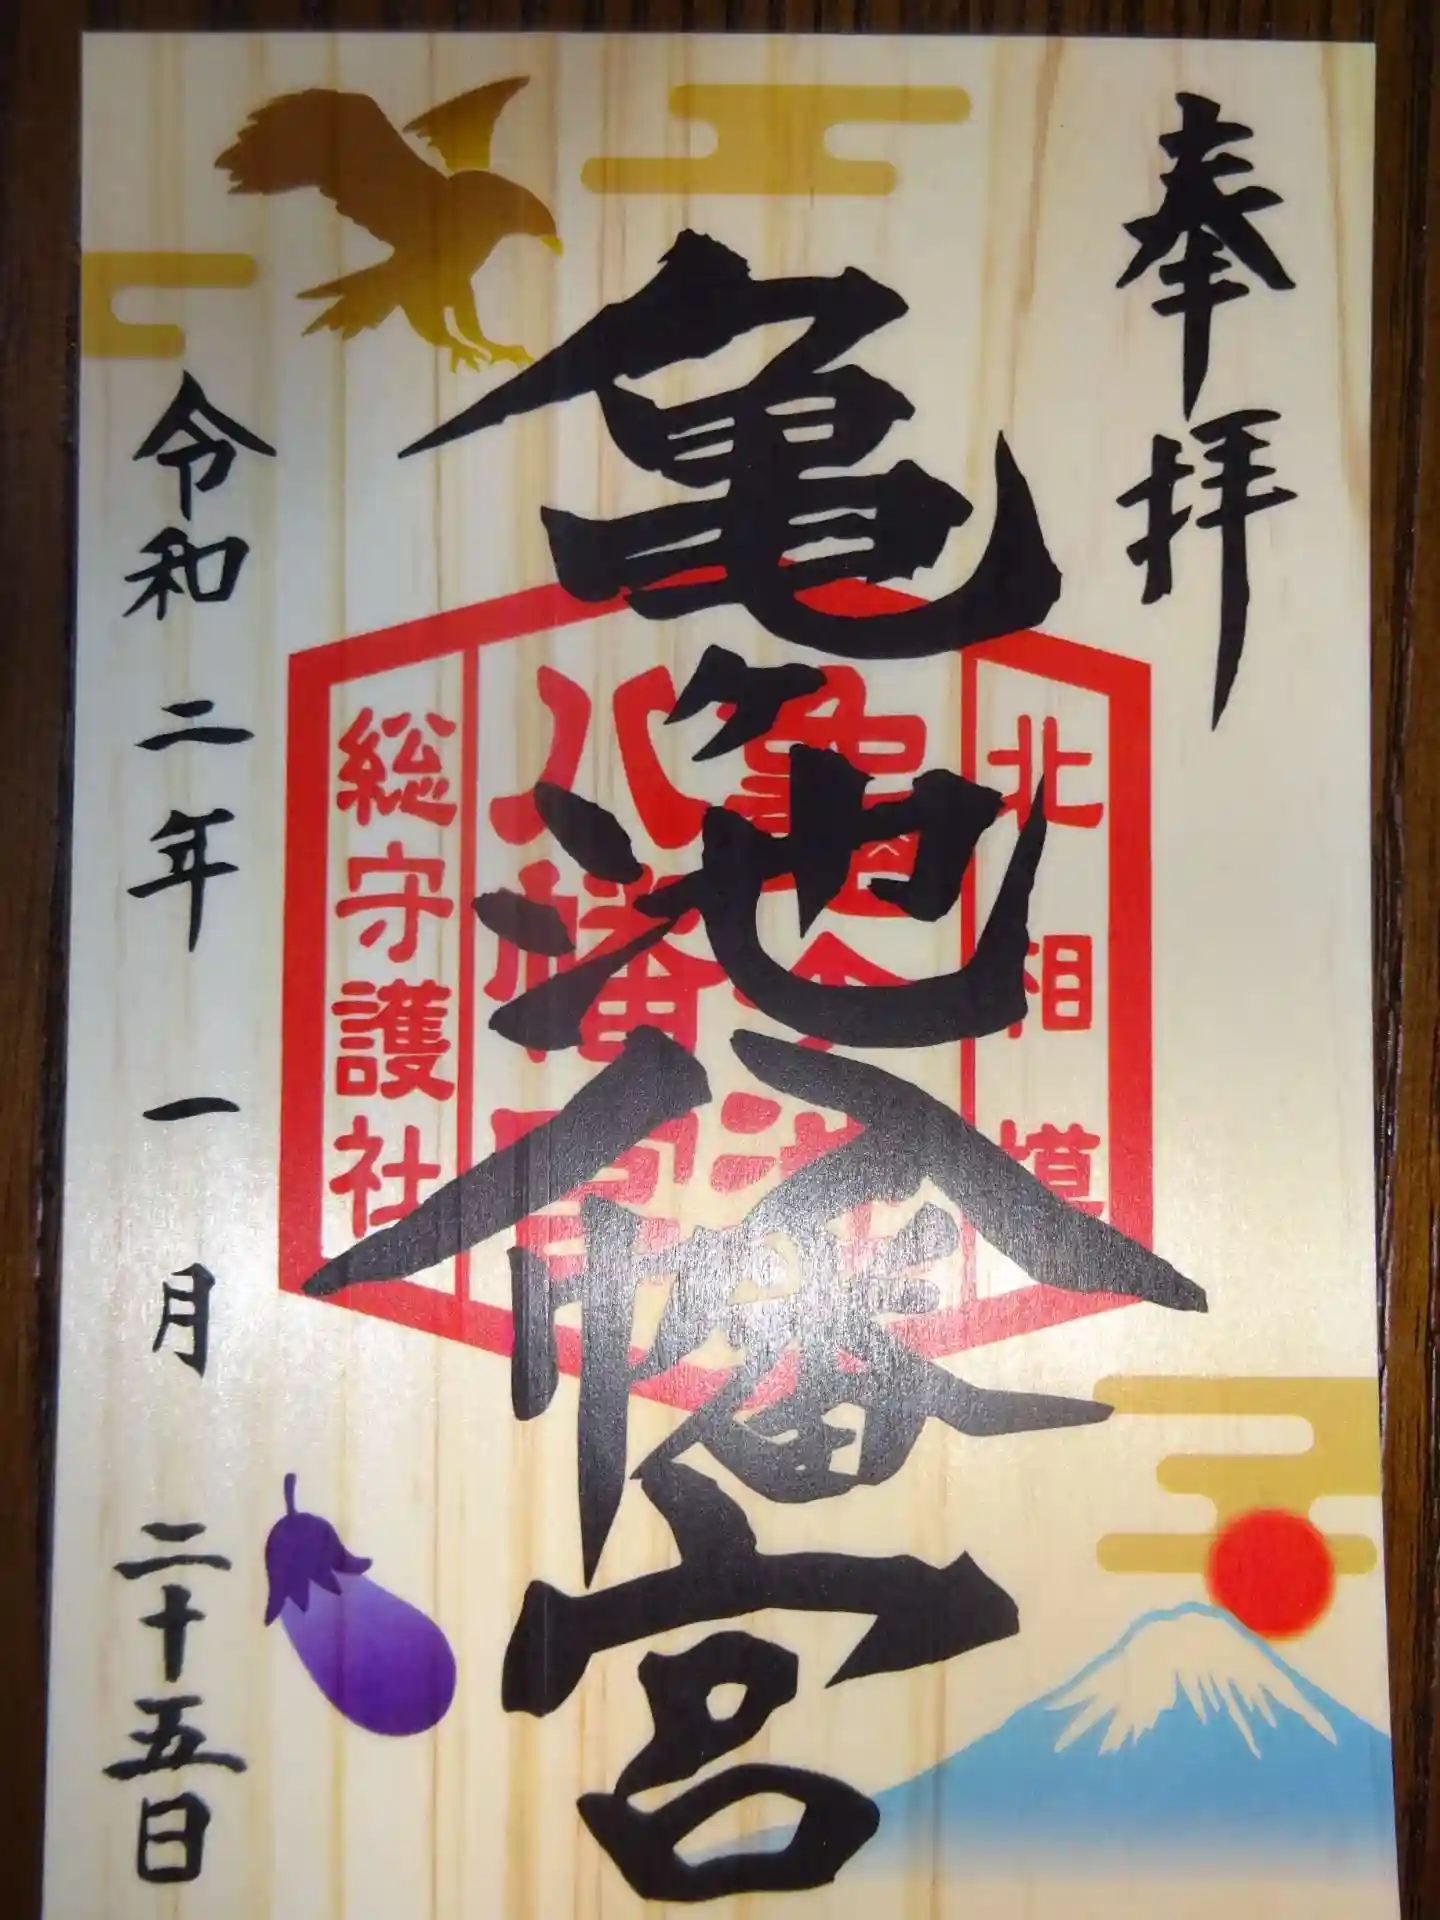 奉拝
亀ヶ池八幡宮
北相模
八幡宮
総守護社
令和二年一月二十五日